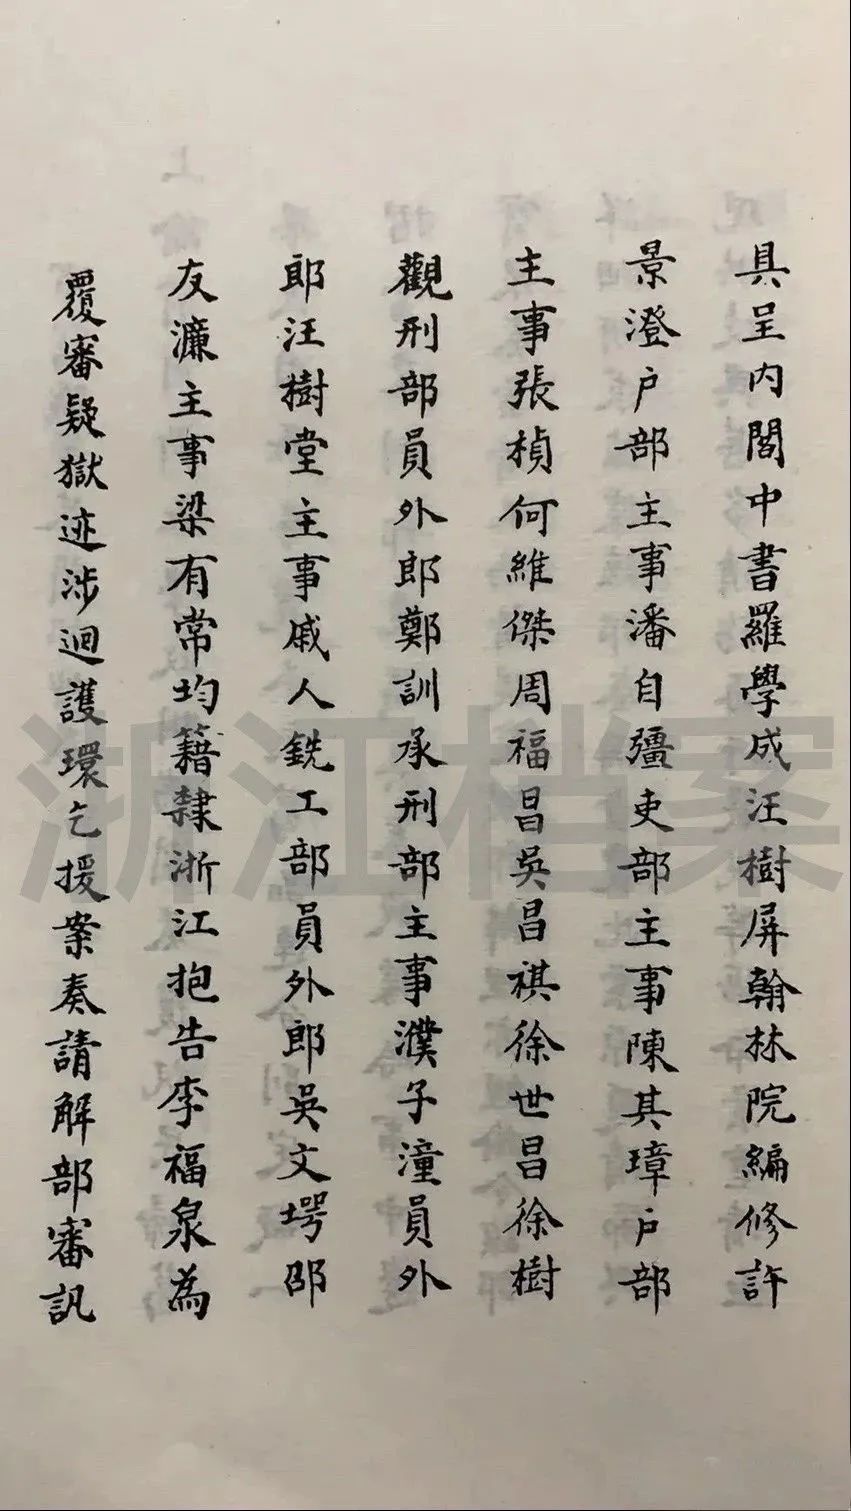 具呈內閣中書羅學成汪樹屏翰林院編修許
景澄户部主事潘自彊吏部主事陳其璋户部
主事張楨何維傑周福昌吳昌祺徐世昌徐樹
觀刑部員外郎鄭訓承刑部主事濮子潼員外
郎汪樹堂主事戚人銑工部員外郎吳文堮邵
友濂主事梁有常均籍隸浙江抱告李福泉為
覆審疑獄迹涉迴護環乞援案奏請解部審訊
浙江档案